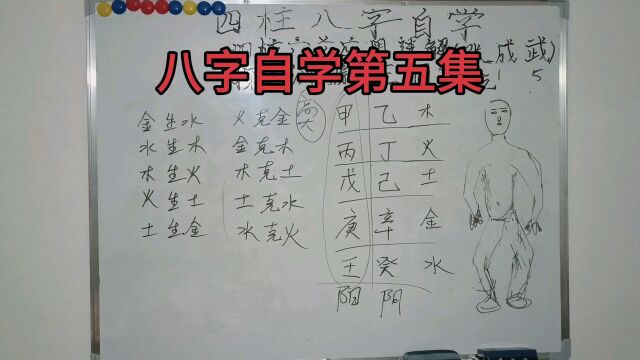 四柱八字自学
成武)
八字自学第五集
5
金生水 火克金
水生木 金克木
木生火 木克土
火生土 土克水
土生金 水克火
甲 乙 木
丙 丁 火
戊 己 土
庚 辛 金
壬 癸 水
阳 阴